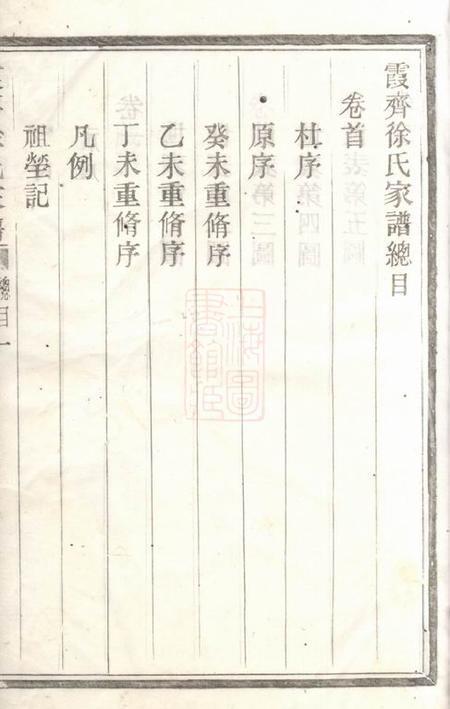 霞齊徐氏家譜總目
卷首
杜序
原序
癸未重脩序
乙未重脩序
丁未重脩序
凡例
祖塋記
總目一
上海圖書館藏